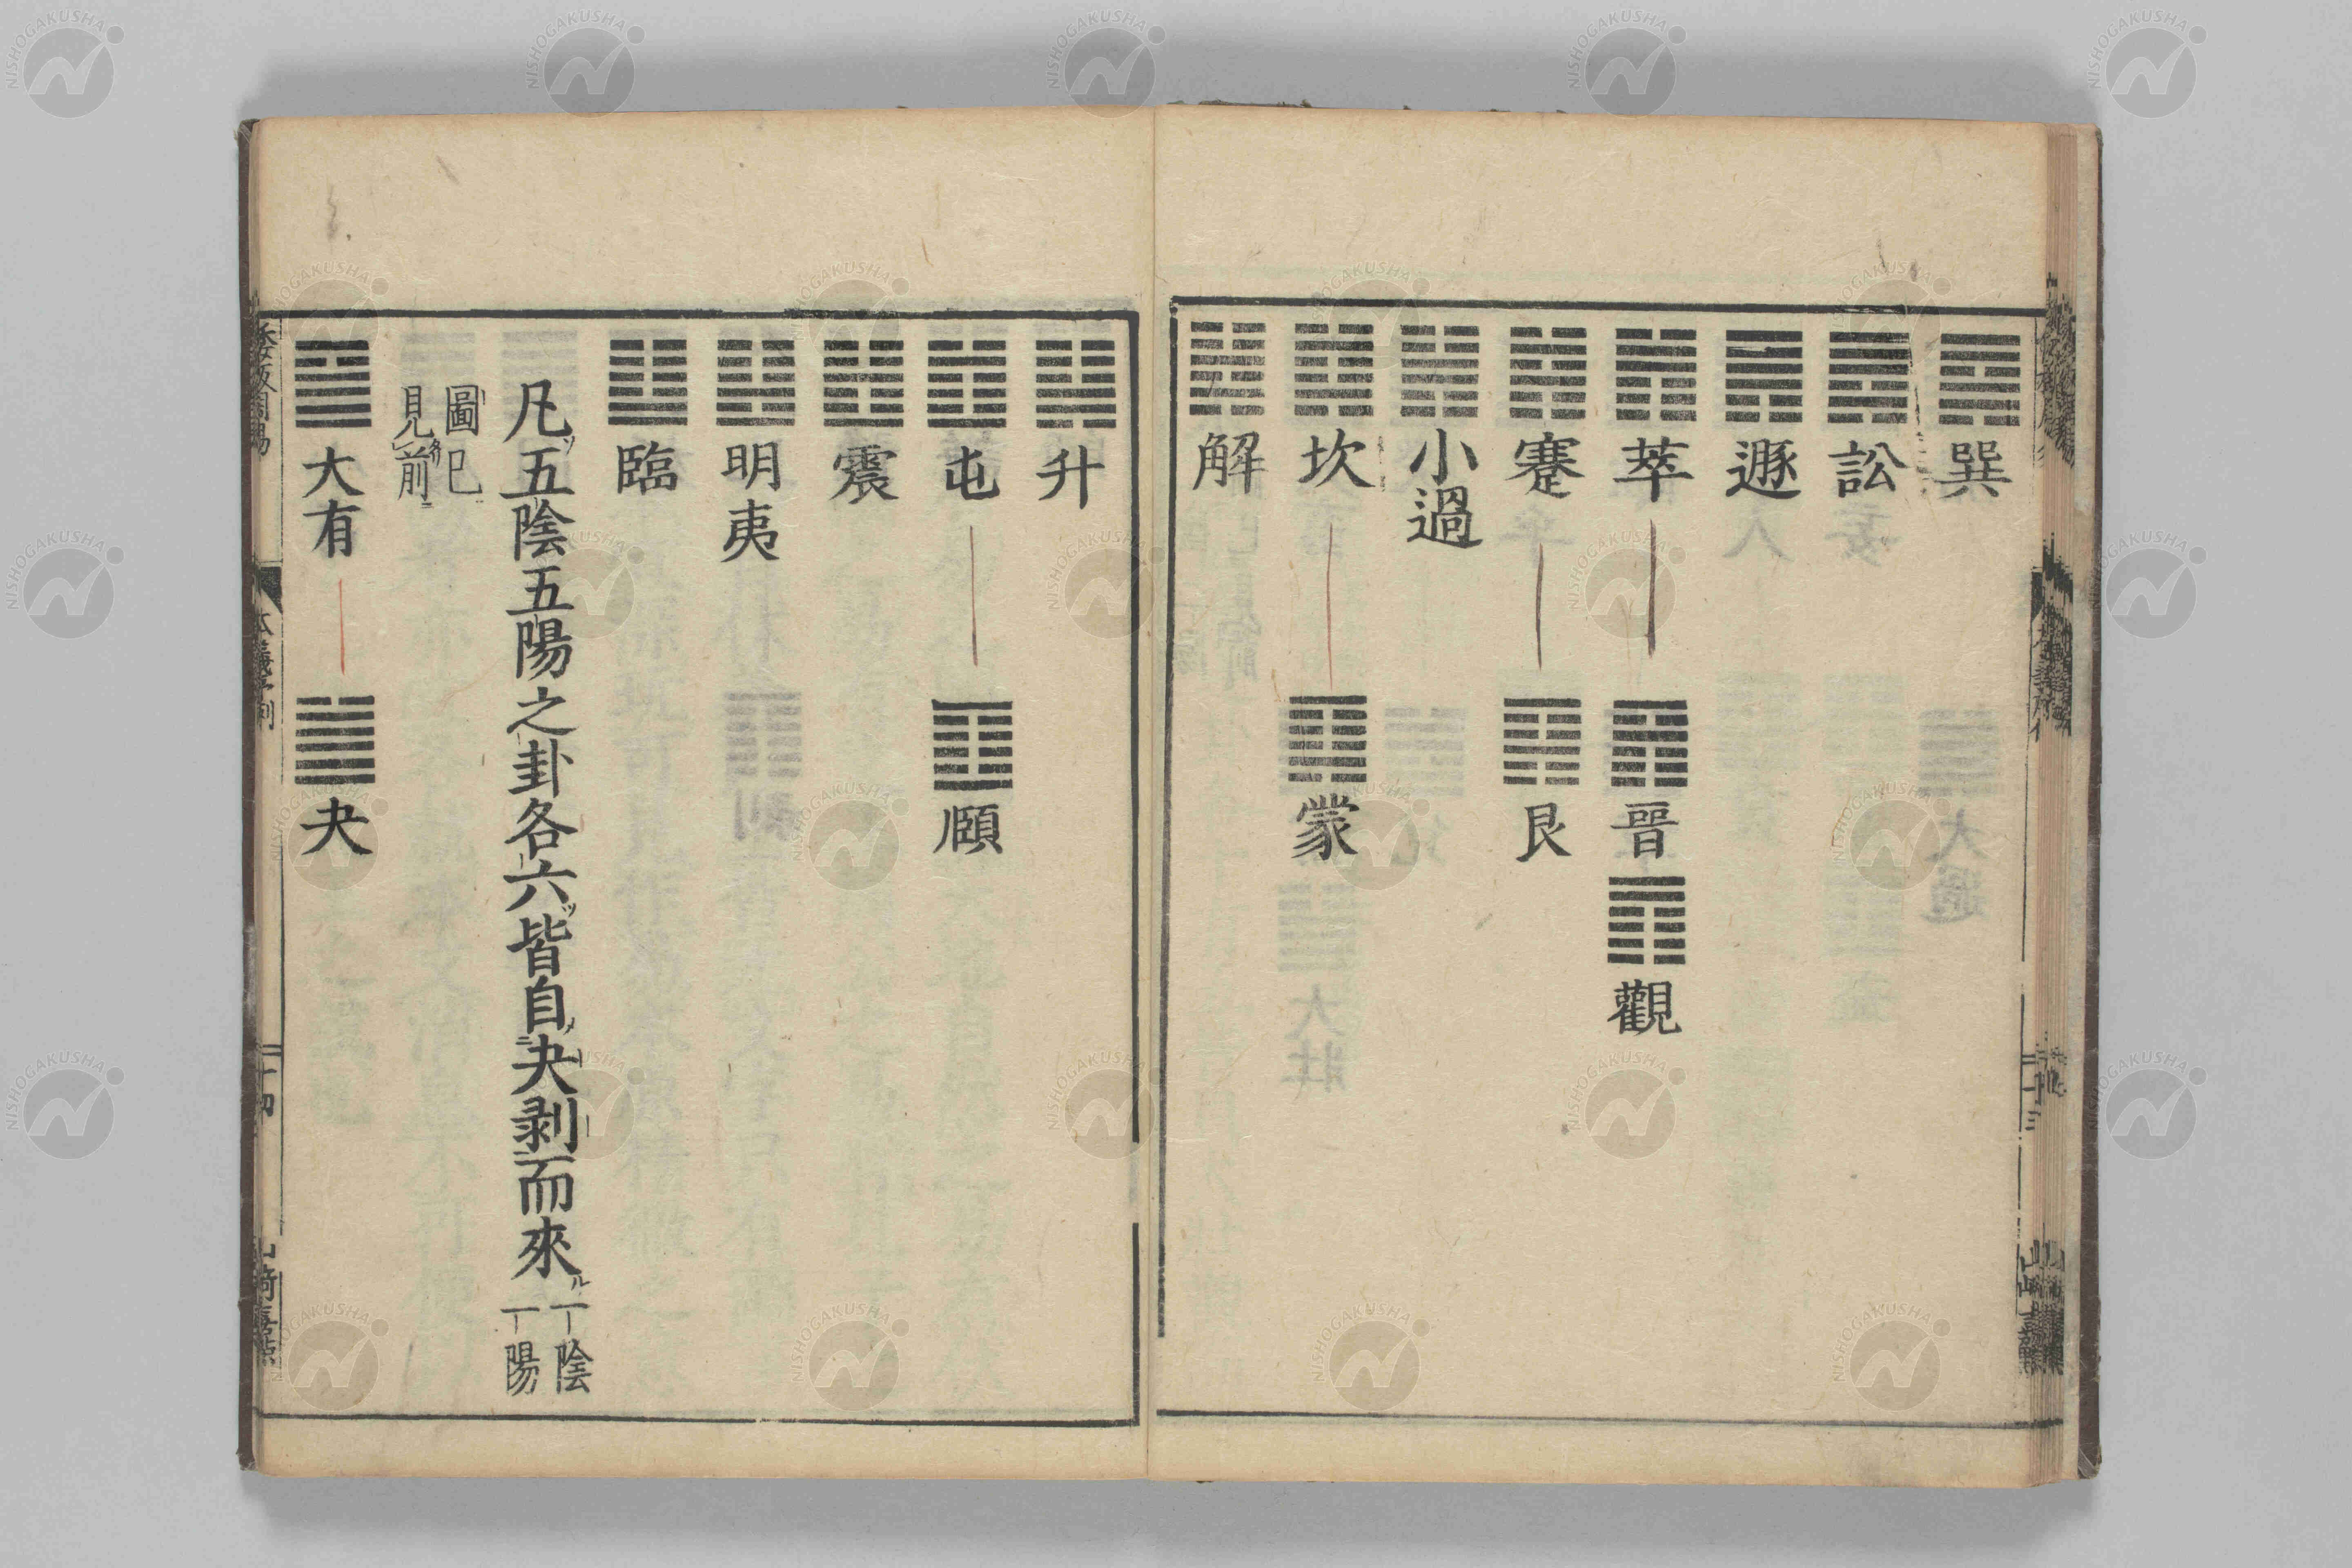 巽
訟
遯
萃 晉 觀
蹇 艮
小過
坎 蒙
解
升
屯 頤
震
明夷
臨
凡五陰五陽之卦各六皆自夬剥而來
一陰
一陽
圖已
見前
大有 夬
NISHOGAKUSHA